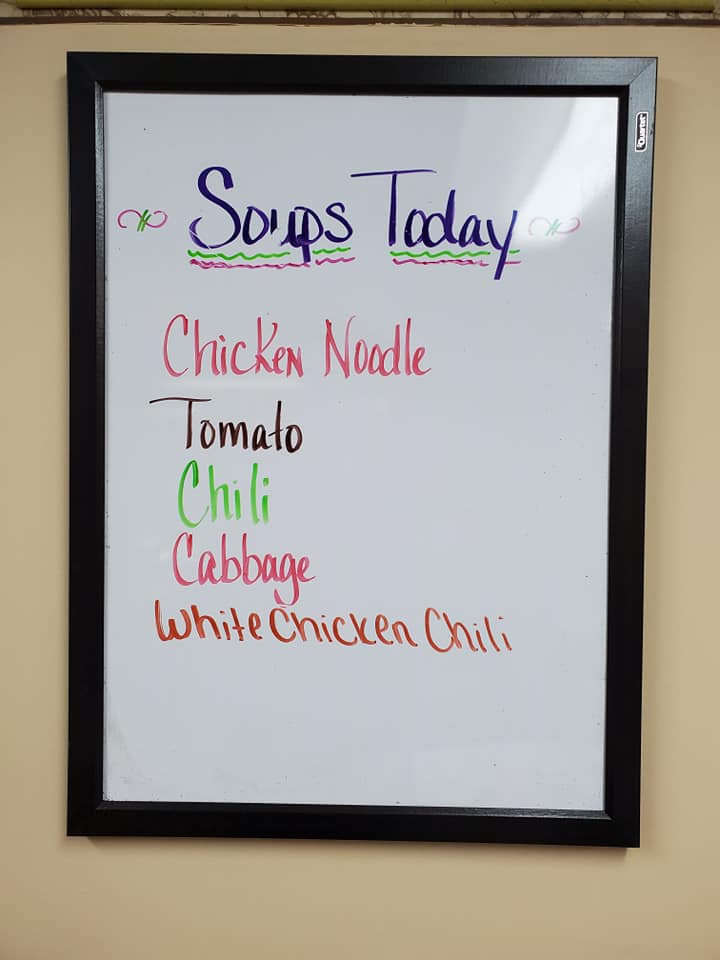 Quartet
Soups Today
Chicken Noodle
Tomato
Chili
Cabbage
White Chicken Chili